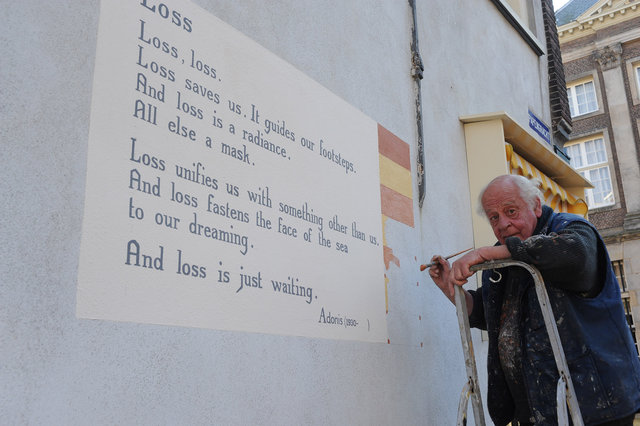 Loss
Loss, loss.
Loss saves us. It guides our footsteps.
And loss is a radiance.
All else a mask.
Loss unifies us with something other than us.
And loss fastens the face of the sea
to our dreaming.
And loss is just waiting.
Adonis (1930-    )